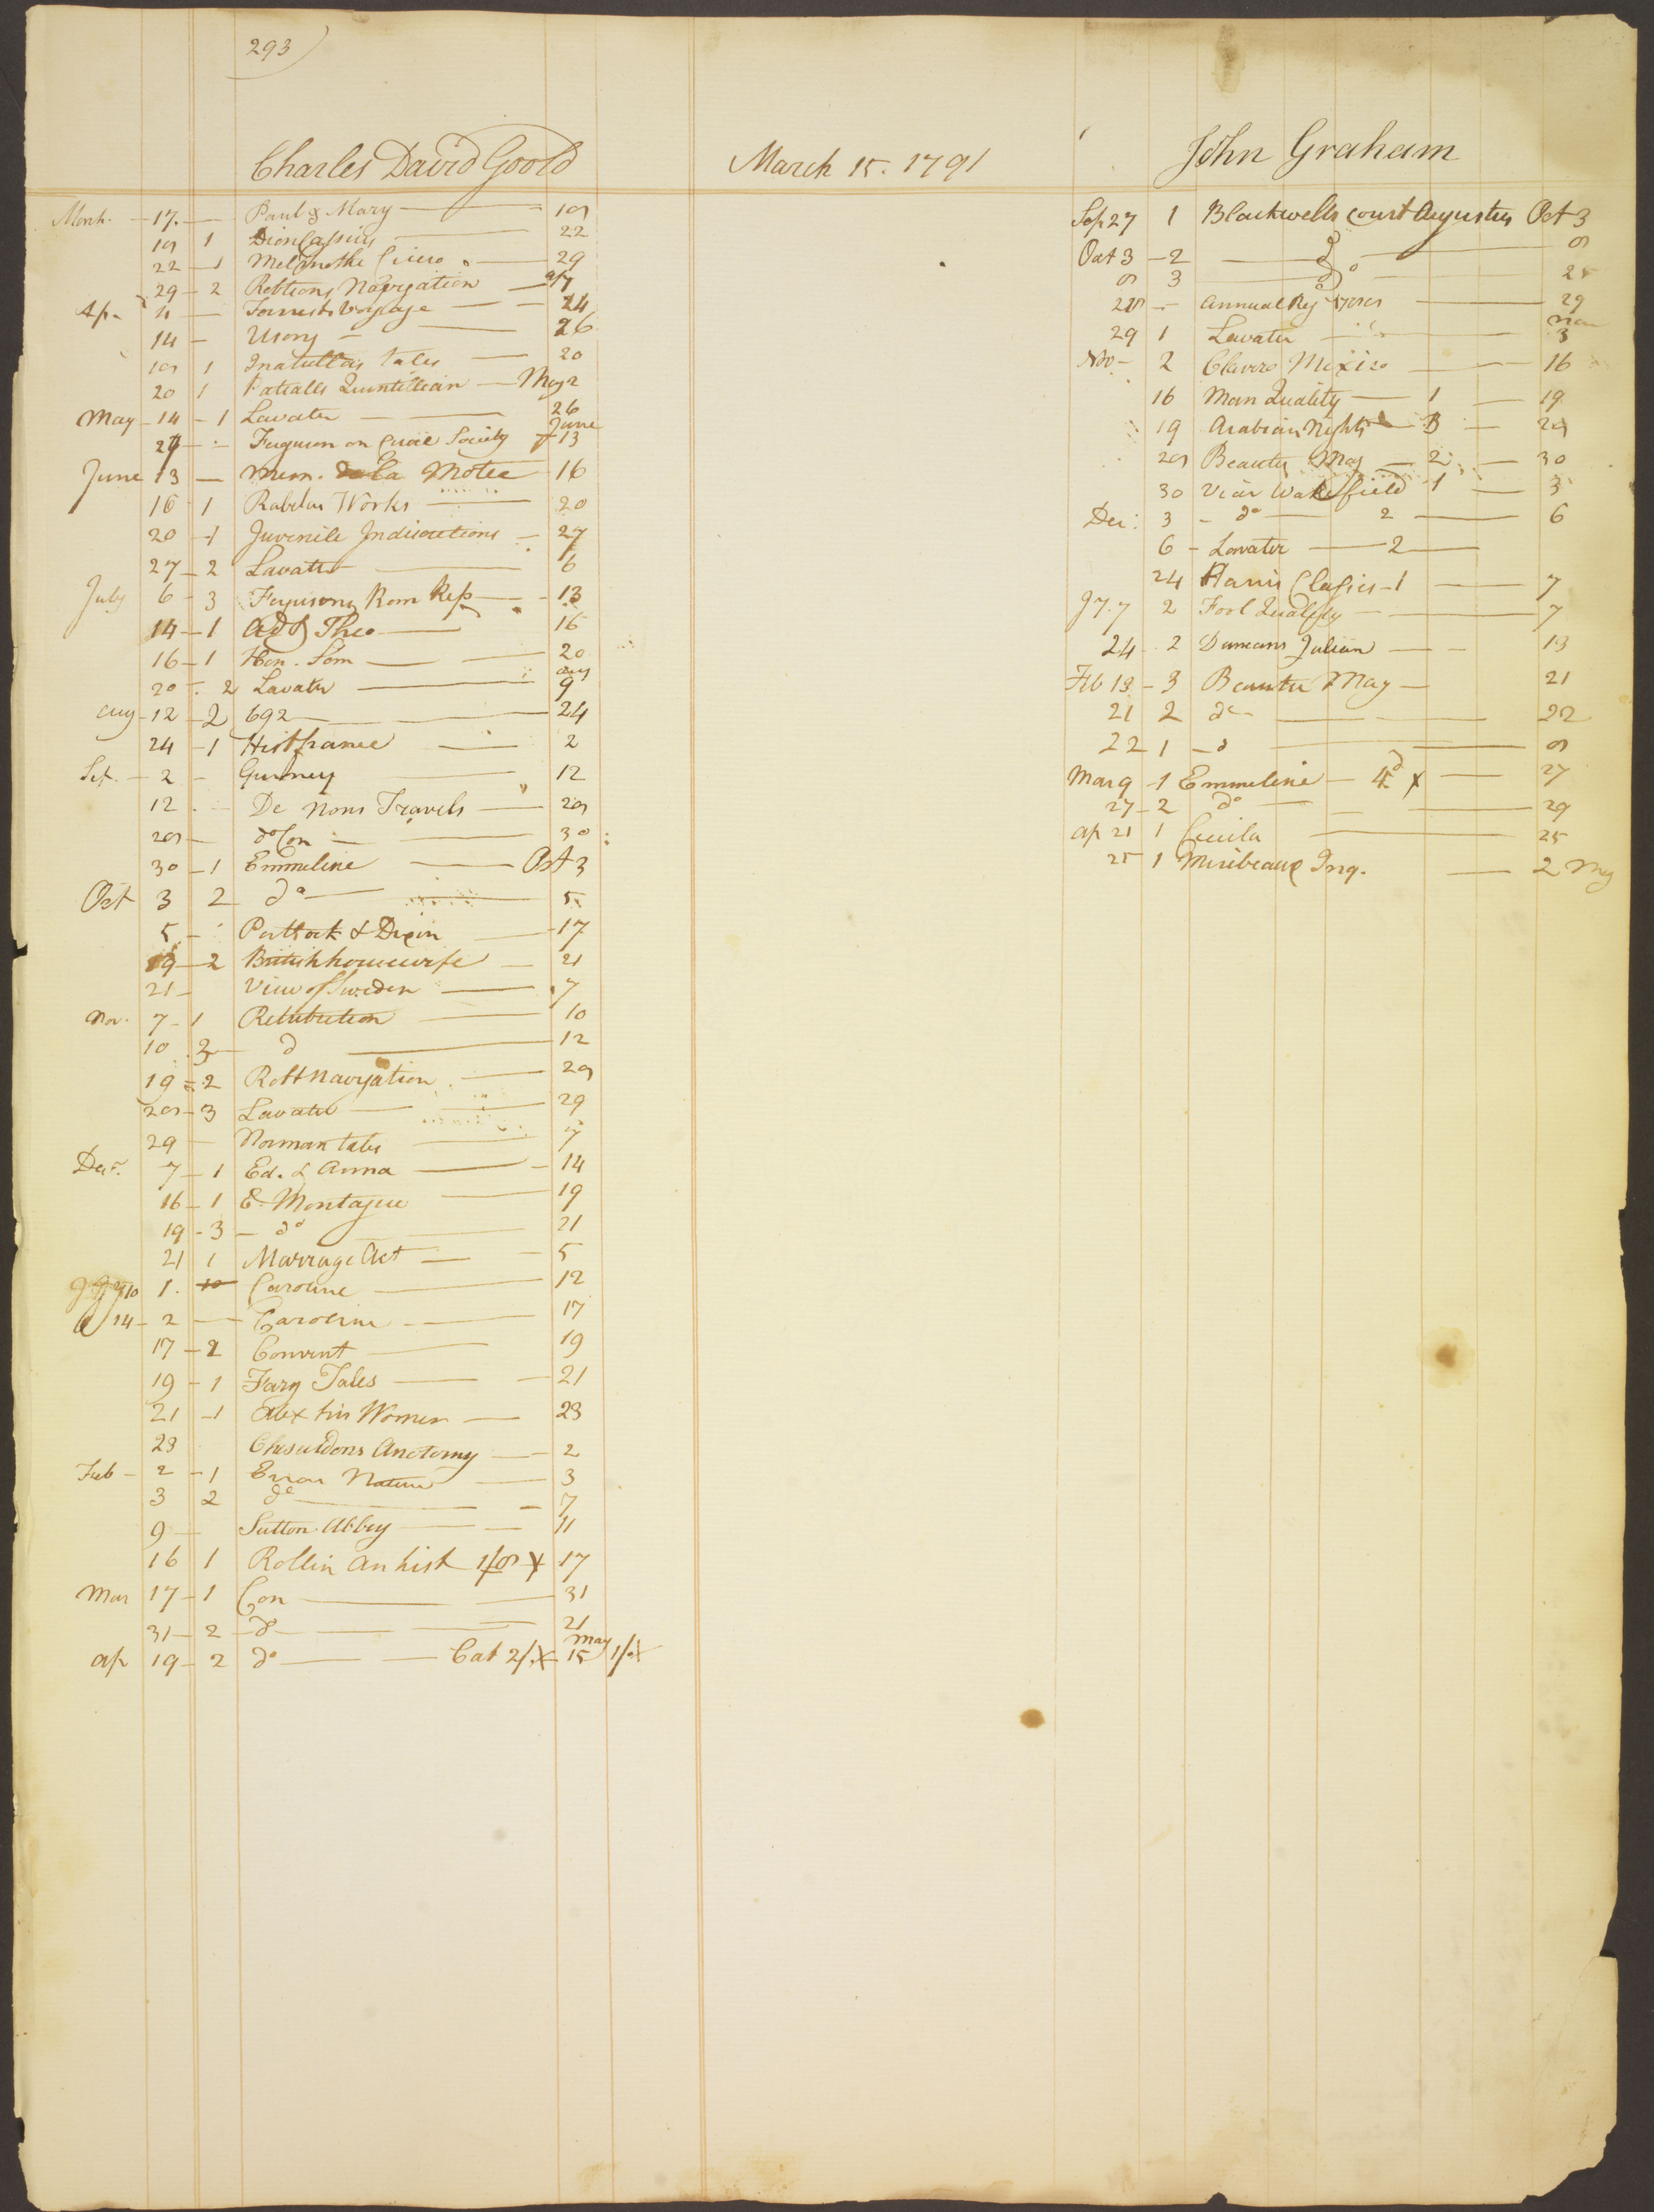 293
Charles David Goold
March 15. 1791
March 17. Paul & Mary 18
18 1 Dion Cassius 22
22 1 Melmoths Cicero 29
29 2 Robtsons Navigation Ap 7
Ap. Forrests Voyage 14
14 Usong 26
18 1 Inatullas Tales 20
20 1 Patsalls Quintillian May 2
May 14 1 Lavater 26
Ferguson on Civil Society June 13
June 13 Mem. de La Motte 16
16 1 Rabelais Works 20
20 1 Juvenile Indiscretions 27
27 2 Lavater 6
July 6 3 Fergusons Rom Rep 13
14 1 Ad & Theo 16
16 1 Hon. Som 20
20 2 Lavater Aug 9
Aug 12 2 692 24
24 1 Hist france 2
Sep. 2 Gurney 12
12 De Nons Travels 28
28 do Con 30
30 1 Emmeline Oct 3
Oct 3 2 do 5
5 Portlock & Dixon 17
19 2 British housewife 21
21 View of Sweden 7
Nov. 7 1 Retribution 10
10 2 d 12
19 2 Robt Navigation 28
28 3 Lavater 29
29 Norman tales 7
Decr. 7 1 Ed. & Anna 14
16 1 E. Montague 19
19 3 do 21
21 1 Marriage Act 5
10 1. 10 Caroline 12
14 2 Caroline 17
17 2 Convent 19
19 1 Fary Tales 21
21 1 Alex his Women 23
23 Cheseldons Anotomy 2
Feb 2 1 Error Nature 3
3 2 do 7
9 Sutton Abbey 11
16 1 Rollin an hist 1/8 X 17
Mar 17 1 Con 31
31 2 do 21
Ap 19 2 do Cat 2/. X May 15 1/. X
John Graham
Sep 27 1 Blackwells court Augustus Oct 3
Oct 3 2 do 8
8 3 do 25
28 Annual Reg 1788 29
29 1 Lavater Nov 3
Nov 2 Clavero Mexico 16
16 Man Quality 1 19
19 Arabian Nights 3 28
28 Beauty Mag 2 30
30 Vicar Wakefield 1 3
Dec. 3 do 2 6
6 Lavater 2
24 Harris Classics 1 7
7 2 Fool Quality 7
24 2 Duncans Julian 13
Feb 13 3 Beautie Mag 21
21 2 do 22
22 1 d 8
Mar 9 1 Emmeline 4d X 27
27 2 do 29
Ap 21 1 Cecila 25
25 1 Miribeaux Inq. 2 May